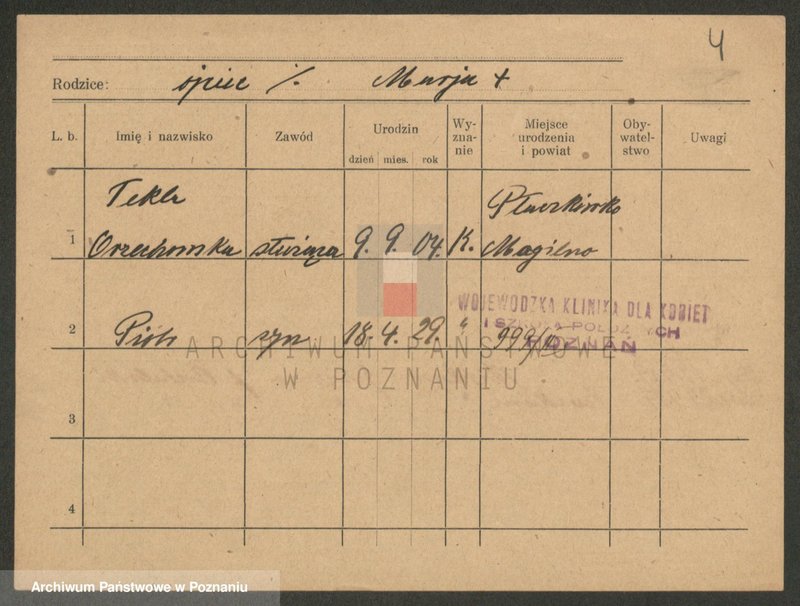 4
Rodzice: ojciec ·/. Marja +
L. b. Imię i nazwisko Zawód Urodzin Wy-zna-nie Miejsce urodzenia i powiat Oby-watel-stwo Uwagi
dzień mies. rok
Tekla
1 Orzechowska służąca 9. 9. 04. K. Mogilno
2 Piotr syn 18. 4. 29 "
WOJEWÓDZKA KLINIKA DLA KOBIET
POZNAŃ
ARCHIWUM PAŃSTWOWE
W POZNANIU
3
4
Archiwum Państwowe w Poznaniu